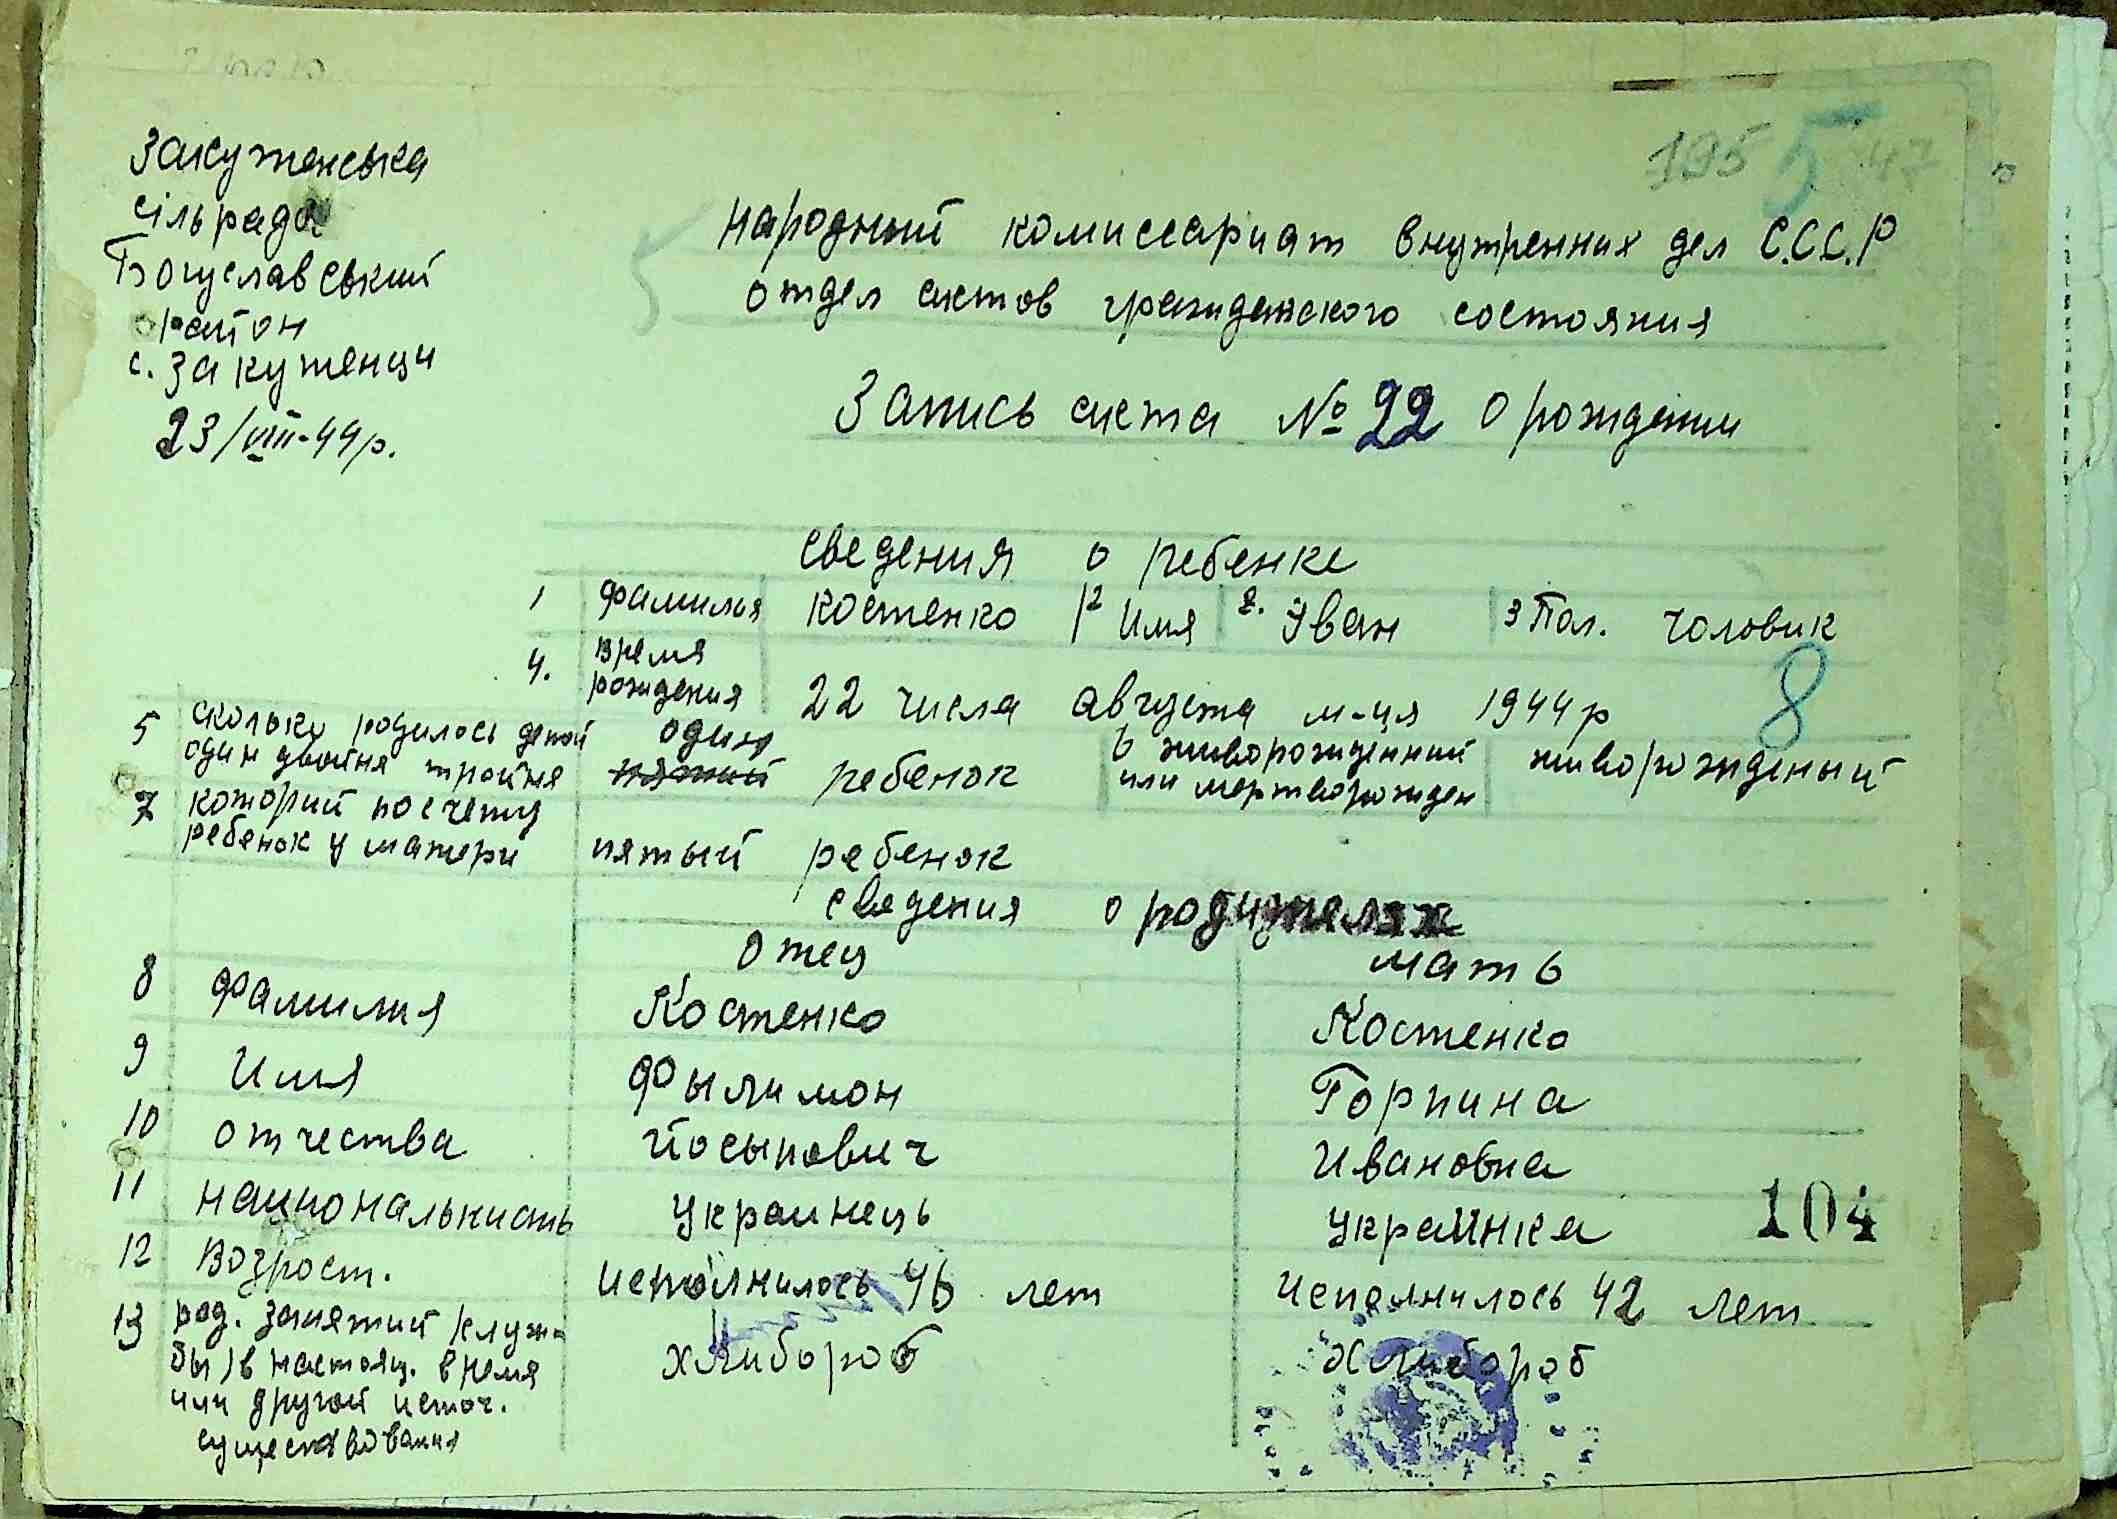 195 5 47
Закутенська
сільрада
Богуславський
район
с. Закутенци
23/VIII-44р.
народний комиссариат внутренних дел С.С.С.Р
отдел актов гражданского состояния
Запись акта № 22 о рождении
сведения о ребенке
1 фамилия Костенко 2 Имя 2. Иван 3 Пол. чоловик
4. время рождения 22 числа августа м-ця 1944р
8
5 сколько родилось детей один двойня тройня один пятый ребенок 6 живорожденний или мертворожден живорожденый
7 который по счету ребенок у матери пятый ребенок
сведения о родителях
отец мать
8 фамилия Костенко Костенко
9 Имя Фылимон Горпина
10 отчества Йосыпович Ивановна
11 национальнисть Украинець украинка
104
12 Возрост. исполнилось 46 лет исполнилось 42 лет
13 род. занятий (служ-
бы) в настоящ. время хлибороб хлибороб
или другой источ.
существования